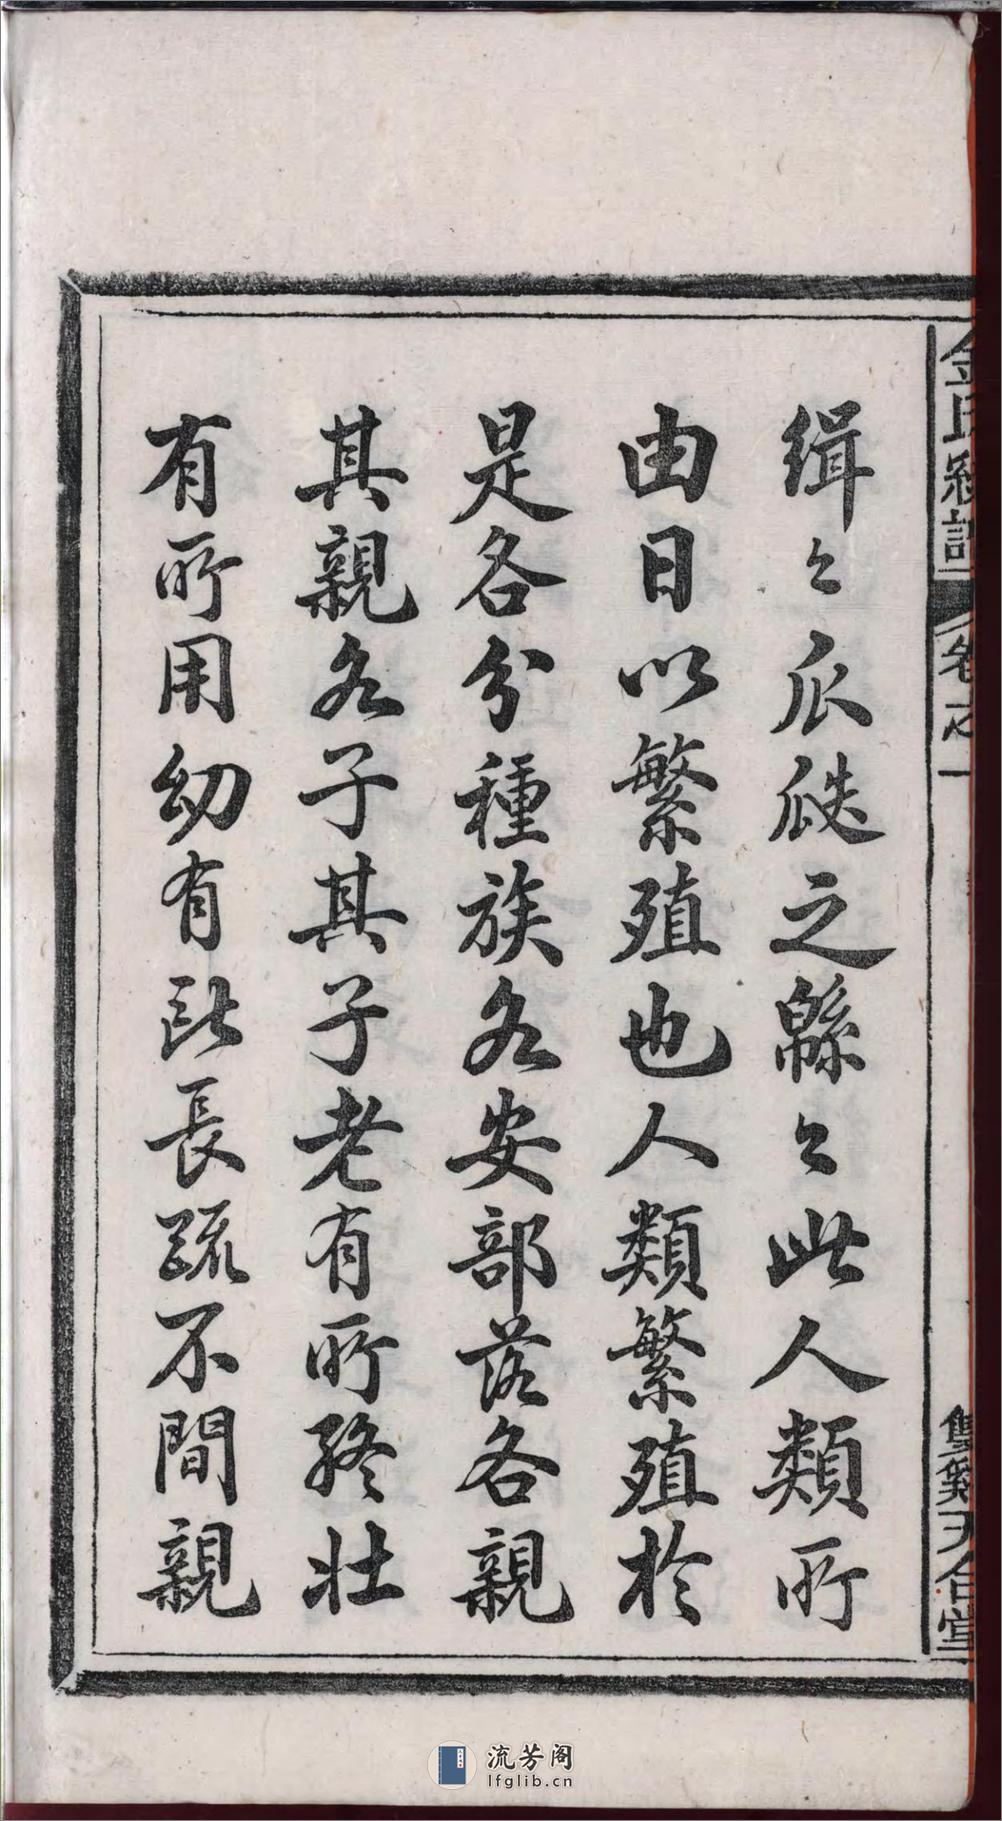 緝〻瓜瓞之緜〻此人類所
由日以繁殖也人類繁殖於
是各分種族各安部落各親
其親各子其子老有所終壯
有所用幼有所長疏不間親
金氏續譜
卷之一
雙鷄天合堂
流芳阁
lfglib.cn